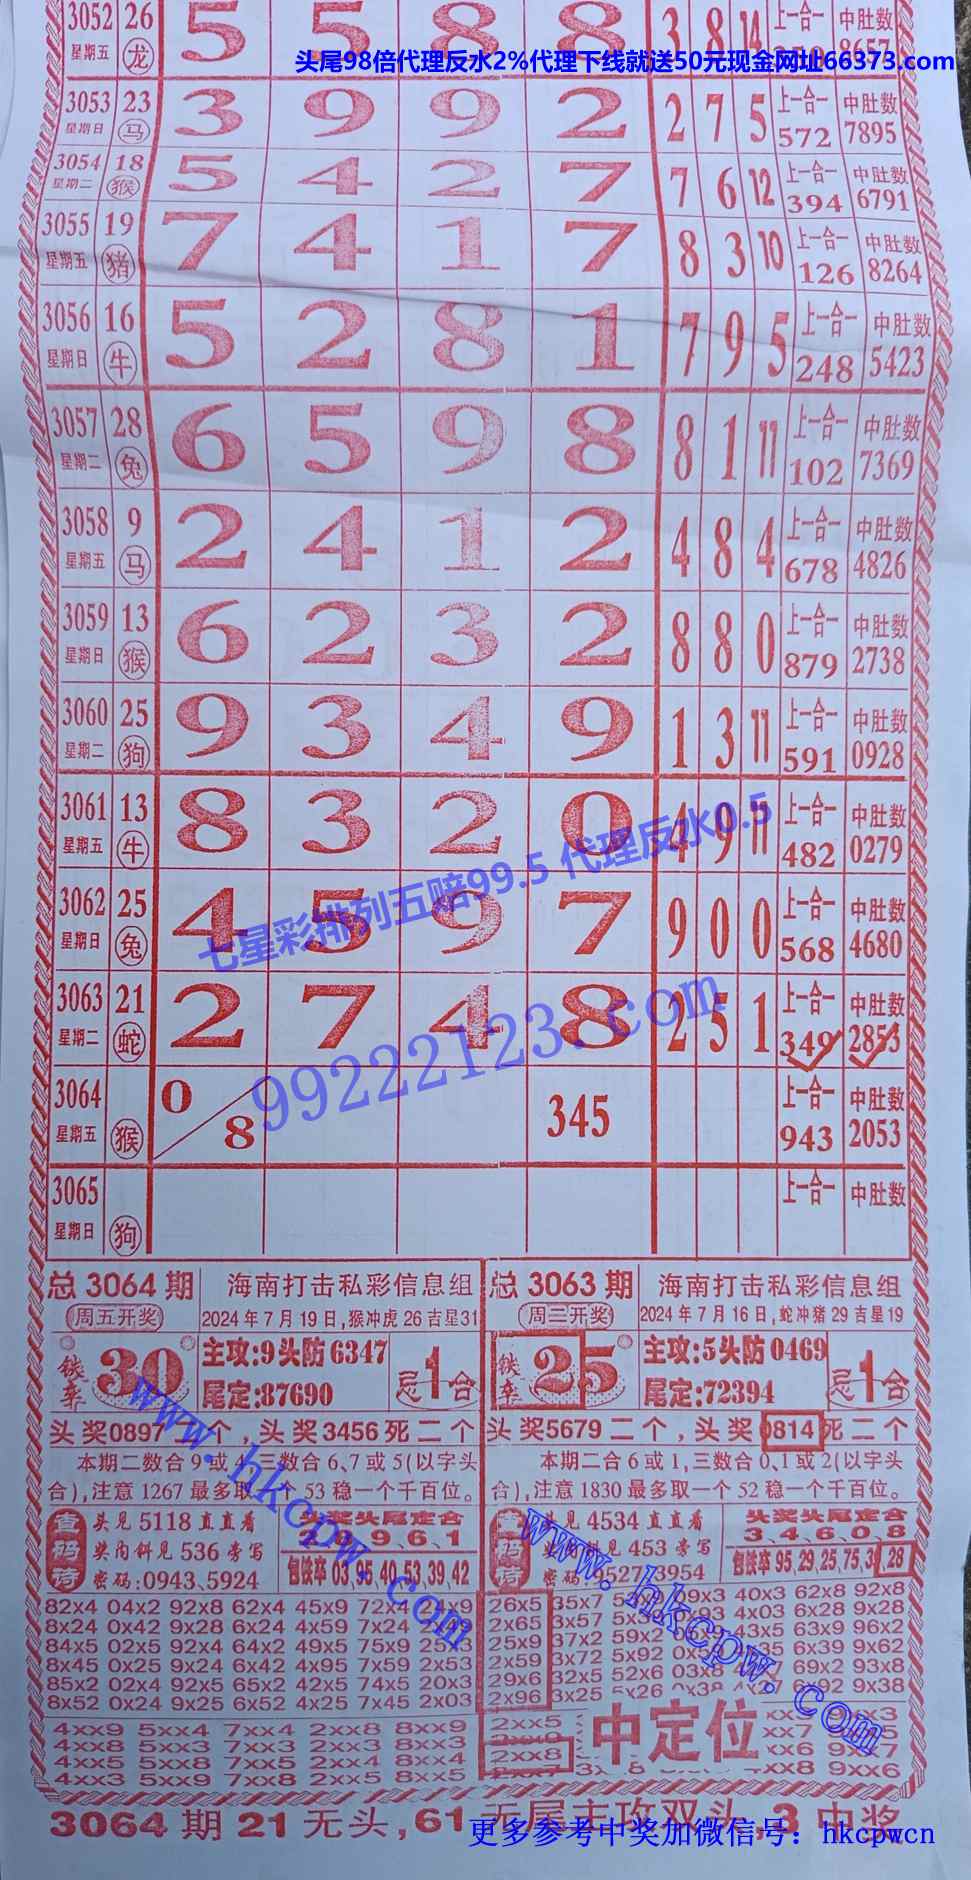 3052 26 5 5 8 8 3 8 14 上一合一 中肚数
星期五 龙 8657
头尾98倍代理反水2%代理下线就送50元现金网址66373.com
3053 23 3 9 9 2 2 7 5 上一合一 中肚数
星期日 马 572 7895
3054 18 5 4 2 7 7 6 12 上一合一 中肚数
星期二 猴 394 6791
3055 19 7 4 1 7 8 3 10 上一合一 中肚数
星期五 猪 126 8264
3056 16 5 2 8 1 7 9 5 上一合一 中肚数
星期日 牛 248 5423
3057 28 6 5 9 8 8 1 11 上一合一 中肚数
星期二 兔 102 7369
3058 9 2 4 1 2 4 8 4 上一合一 中肚数
星期五 马 678 4826
3059 13 6 2 3 2 8 8 0 上一合一 中肚数
星期日 猴 879 2738
3060 25 9 3 4 9 1 3 11 上一合一 中肚数
星期二 狗 591 0928
3061 13 8 3 2 0 4 9 11 上一合一 中肚数
星期五 牛 482 0279
七星彩排列五赔99.5 代理反水0.5
3062 25 4 5 9 7 9 0 0 上一合一 中肚数
星期日 兔 568 4680
3063 21 2 7 4 8 2 5 1 上一合一 中肚数
星期二 蛇 349 2853
99222123.com
3064 0 8 345 上一合一 中肚数
星期五 猴 943 2053
3065 上一合一 中肚数
星期日 狗
总3064期 海南打击私彩信息组
周五开奖 2024年7月19日,猴冲虎26吉星31
铁卒 30 主攻:9头防6347 忌1合
尾定:87690
头奖0897 个，头奖3456死二个
本期二数合9或4,三数合6、7或5(以字头
合),注意1267最多取 个53稳一个千百位。
头见5118直直看
奖内斜见536旁写
密码:0943、5924
头奖头尾定合
9、6、1
包铁卒03,95,40,53,39,42
82x4 04x2 92x8 62x4 45x9 72x4
8x24 0x42 9x28 6x24 4x59 7x24
84x5 02x5 92x4 64x2 49x5 75x9
8x45 0x25 9x24 6x42 4x95 7x59 2x53
85x2 02x4 92x5 65x2 42x5 74x5 20x3
8x52 0x24 9x25 6x52 4x25 7x45 2x03
4xx9 5xx4 7xx4 2xx8 8xx9
4xx8 5xx3 7xx3 2xx3 8xx3
4xx5 5xx8 7xx5 2xx4 8xx4
4xx3 5xx9 7xx8 2xx5 8xx5
总3063期 海南打击私彩信息组
周二开奖 2024年7月16日,蛇冲猪29吉星19
铁卒 25 主攻:5头防0469 忌1合
尾定:72394
头奖5679二个，头奖0814死二个
本期二合6或1,三数合0、1或2(以字头
合),注意1830最多取一个52稳一个千百位。
头见4534直直看
奖内斜见453旁写
密码:9527、3954
头奖头尾定合
3、4、6、0、8
包铁卒95,29,25,75,3 ,28
26x5 35x7 09x3 40x3 62x8 92x8
2x65 3x57 4x03 6x28 9x28
25x9 37x2 59x2 43x5 63x9 96x2
2x59 3x72 5x92 6x39 9x62
29x6 32x5 52x6 03x8 69x2 93x8
2x96 3x25 5x26 0x38 6x92 9x38
2xx5
2xx8 9xx6
中定位
www.hkcpw.com
www.hkcpw.com
3064期21无头,61无尾主攻双头,3中奖
更多参考中奖加微信号：hkcpwcn